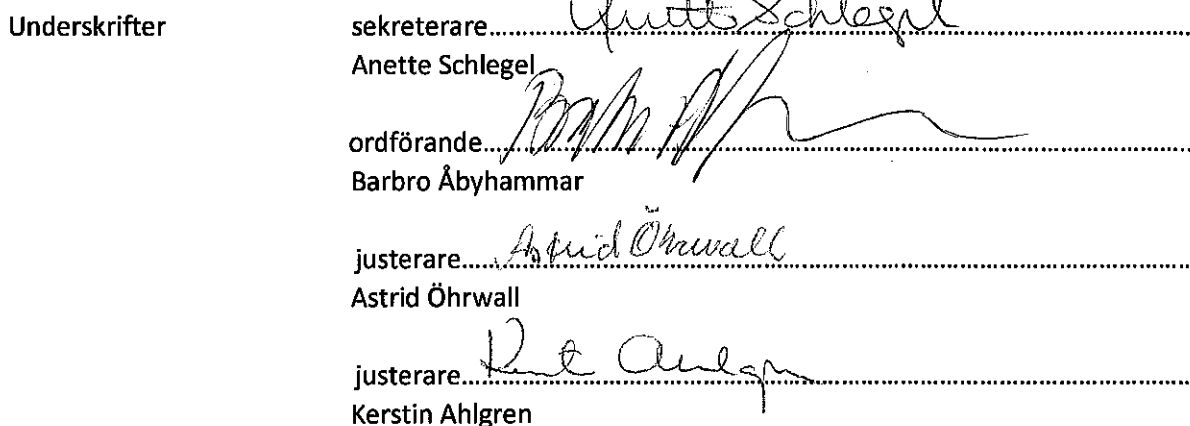 Underskrifter sekreterare.......Anette Schlegel
Anette Schlegel
ordförande.......
Barbro Åbyhammar
justerare.......Astrid Öhrwall
Astrid Öhrwall
justerare.......Ahlgren
Kerstin Ahlgren